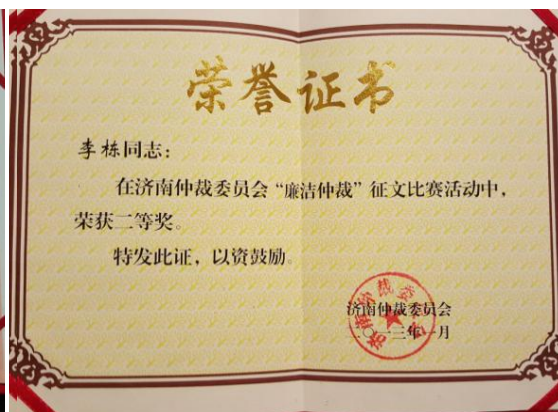 荣誉证书
李栋同志：
在济南仲裁委员会“廉洁仲裁”征文比赛活动中，
荣获二等奖。
特发此证，以资鼓励。
济南仲裁委员会
二〇一三年一月
济南仲裁委员会